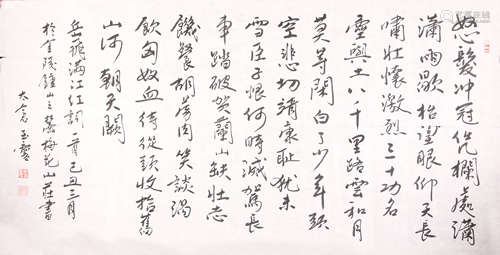 怒髮冲冠凭欄處瀟
瀟雨歇抬望眼仰天長
嘯壯懷激烈三十功名
塵與土八千里路雲和月
莫等閑白了少年頭
空悲切靖康耻猶未
雪臣子恨何時滅駕長
車踏破賀蘭山缺壯志
饑餐胡虜肉笑談渴
飲匈奴血待從頭收拾舊
山河朝天闕
岳飛滿江紅詞一首己丑三月
於金陵鐘山之麓梅花山莊書
太倉王